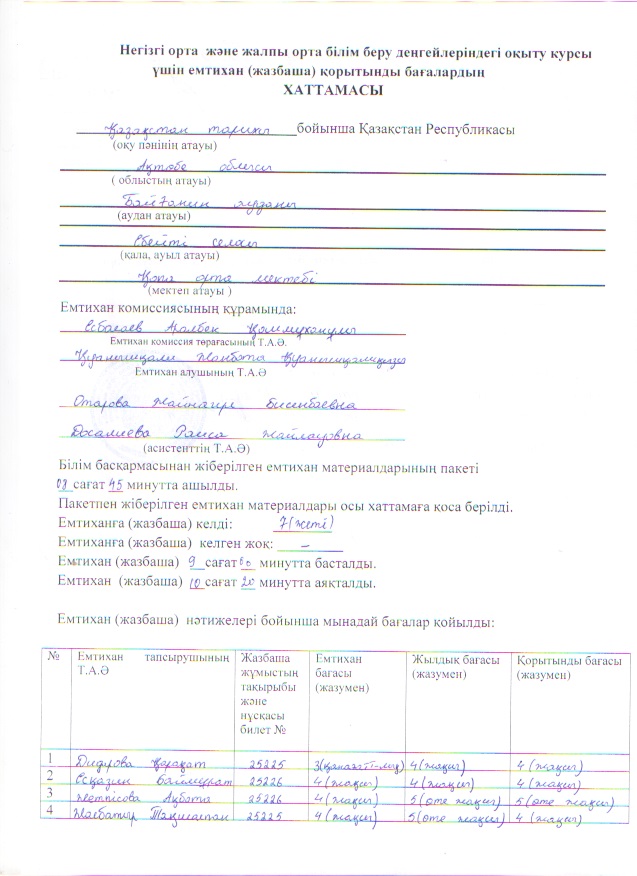 Негізгі орта және жалпы орта білім беру деңгейлеріндегі оқыту курсы
үшін емтихан (жазбаша) қорытынды бағалардың
ХАТТАМАСЫ
Қазақстан тарихы бойынша Қазақстан Республикасы
(оқу пәнінің атауы)
Ақтөбе облысы
( облыстың атауы)
Байғанин ауданы
(аудан атауы)
Ебейті селосы
(қала, ауыл атауы)
орта мектебі
(мектеп атауы )
Емтихан комиссиясының құрамында:
Аралбек
Емтихан комиссия төрағасының Т.А.Ә.
Жанбота
Емтихан алушының Т.А.Ә
Отарова Бисенбаевна
Раиса Жайлауовна
(асистенттің Т.А.Ә)
Білім басқармасынан жіберілген емтихан материалдарының пакеті
08 сағат 45 минутта ашылды.
Пакетпен жіберілген емтихан материалдары осы хаттамаға қоса берілді.
Емтиханға (жазбаша) келді: 7(жеті)
Емтиханға (жазбаша) келген жоқ: –
Емтихан (жазбаша) 9 сағат 00 минутта басталды.
Емтихан (жазбаша) 10 сағат 20 минутта аяқталды.
Емтихан (жазбаша) нәтижелері бойынша мынадай бағалар қойылды:
№ Емтихан тапсырушының Т.А.Ә Жазбаша жұмыстың тақырыбы және нұсқасы билет № Емтихан бағасы (жазумен) Жылдық бағасы (жазумен) Қорытынды бағасы (жазумен)
1 Қарақат 25225 4 (жақсы) 4 (жақсы)
2 Баймұрат 25226 4 (жақсы) 4 (жақсы) 4 (жақсы)
3 Жетпісова Ақбота 25226 4 (жақсы) 5 (өте жақсы) 5 (өте жақсы)
4 25225 4 (жақсы) 5 (өте жақсы) 4 (жақсы)